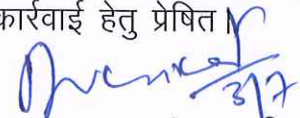 कार्रवाई हेतु प्रेषित।
3/7